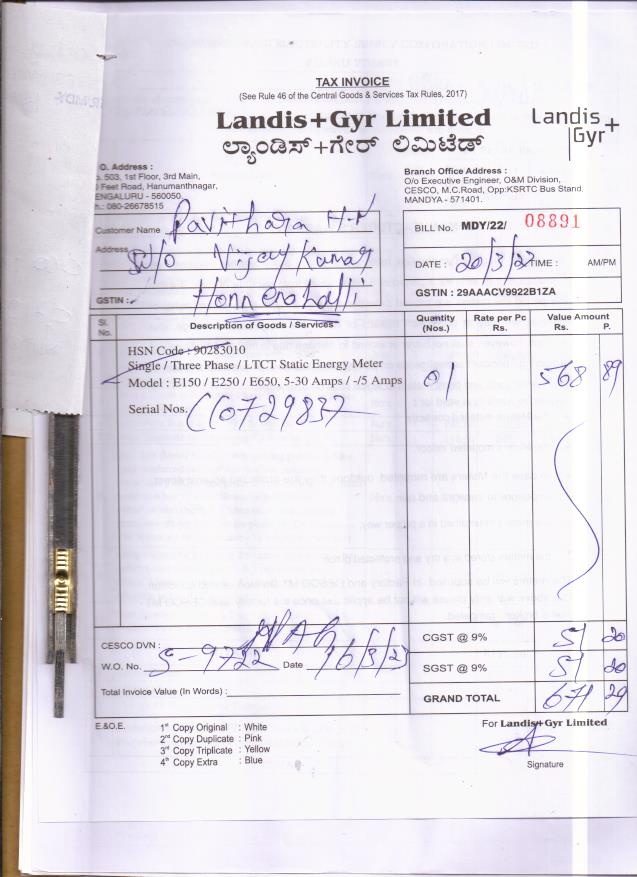 TAX INVOICE
(See Rule 46 of the Central Goods & Services Tax Rules, 2017)
Landis+Gyr Limited
ಲ್ಯಾಂಡಿಸ್+ಗೇರ್ ಲಿಮಿಟೆಡ್
Landis
Gyr+
O. Address :
503, 1st Floor, 3rd Main,
Feet Road, Hanumanthnagar,
ENGALURU - 560050
080-26678515
Branch Office Address :
O/o Executive Engineer, O&M Division,
CESCO, M.C.Road, Opp:KSRTC Bus Stand
MANDYA - 571401.
Customer Name Pavithara H.N
Address W/o Vijay Kumar
GSTIN :
BILL No. MDY/22/ 08891
DATE : 20/3/23 TIME : AM/PM
GSTIN : 29AAACV9922B1ZA
Sl. No. Description of Goods / Services Quantity (Nos.) Rate per Pc Rs. Value Amount Rs. P.
HSN Code : 90283010
Single / Three Phase / LTCT Static Energy Meter
Model : E150 / E250 / E650, 5-30 Amps / -/5 Amps 01 568 89
Serial Nos. CC0729837
CESCO DVN :
CGST @ 9% 51 20
W.O. No. 5-9722 Date 16/3/23
SGST @ 9% 51 20
Total Invoice Value (In Words) :
GRAND TOTAL 671 29
E.&O.E.
1st Copy Original : White
2nd Copy Duplicate : Pink
3rd Copy Triplicate : Yellow
4th Copy Extra : Blue
For Landis+Gyr Limited
Signature